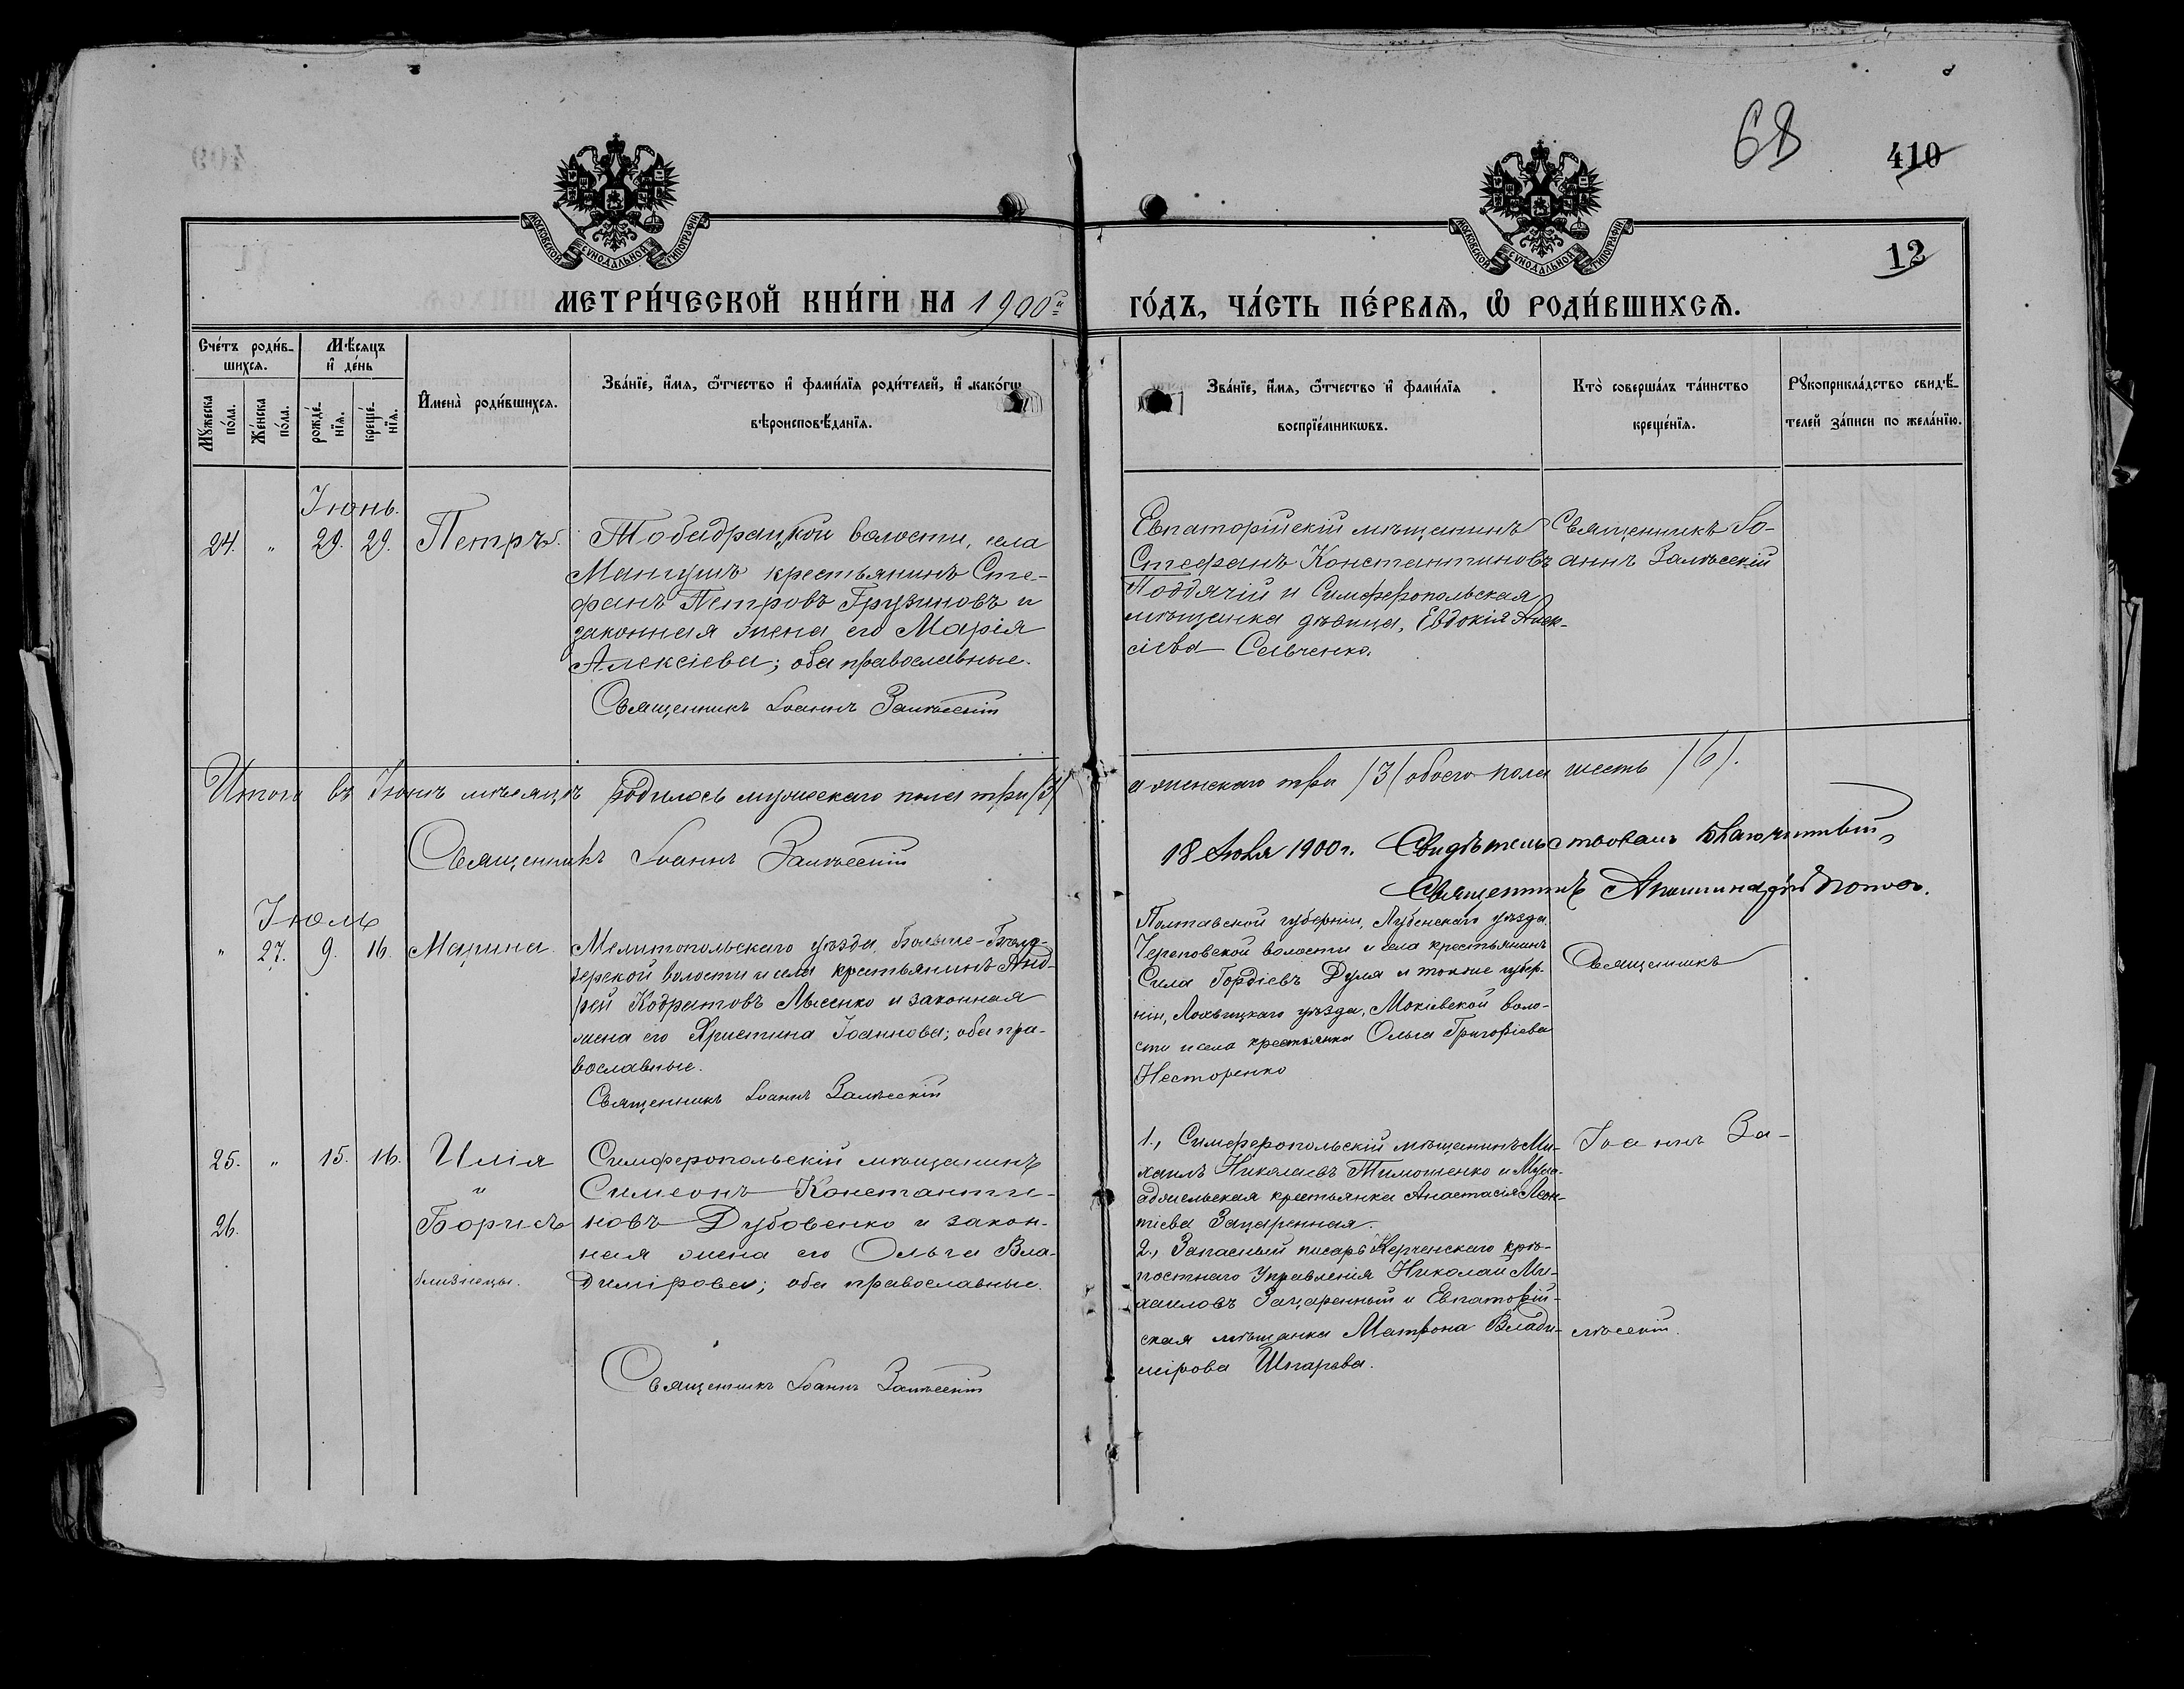 68
410
12
МОСКОВСКОЙ СѴНОДАЛЬНОЙ ТИПОГРАФІИ
МОСКОВСКОЙ СѴНОДАЛЬНОЙ ТИПОГРАФІИ
МЕТРИ́ЧЕСКОЙ КНИ́ГИ НА 1900й
ГО́ДЪ, ЧА́СТЬ ПЕ́РВАѦ, Ѡ҆ РОДИ́ВШИХСѦ.
Сче́тъ роди́в-
шихсѧ.
Мꙋ́жеска по́ла.
Же́нска по́ла.
Мѣ́сѧцъ
и҆ де́нь
рожде́-
нїѧ.
креще́-
нїѧ.
И҆мена̀ роди́вшихсѧ.
Зва́нїе, и҆́мѧ, ѻ҆́тчество и҆ фами́лїѧ роди́телей, и҆ како́гѡ
вѣроисповѣ́данїѧ.
Зва́нїе, и҆́мѧ, ѻ҆́тчество и҆ фами́лїѧ
воспрїе́мникѡвъ.
Кто̀ соверша́лъ та́инство
креще́нїѧ.
Рꙋкоприкла́дство свидѣ́-
телей за́писи по жела́нїю.
Іюнь.
24. " 29. 29. Петръ.
Тобадрацкой волости, села
Мангушъ крестьянинъ Сте-
фанъ Петровъ Грузиновъ и
законная жена его Марія
Алексіева; оба православные.
Священникъ Іоаннъ Залѣсскій
Евпаторійскій мѣщанинъ
Стефанъ Константиновъ
Поддячій и Симферопольская
мѣщанка дѣвица, Евдокія Алек-
сіева
Священникъ Іо-
аннъ Залѣсскій
Итого въ Іюнѣ мѣсяцѣ родилось мужескаго пола три /3/
и женскаго три /3/ обоего пола шесть /6/.
Священникъ Іоаннъ Залѣсскій
18 Іюля 1900 г. Свидѣтельствовалъ Благочинный
Священникъ Поповъ.
Іюль
" 27. 9. 16. Марина.
Мелитопольскаго уѣзда, Больше-Бѣло-
зерской волости и села крестьянинъ Анд-
рей Кодратовъ Лысенко и законная
жена его Христина Іоаннова; оба пра-
вославные.
Священникъ Іоаннъ Залѣсскій
Полтавской губерніи, Лубенскаго уѣзда,
волости и села крестьянинъ
Сила Гордіевъ Дуля и той же губер-
ніи, Лохвицкаго уѣзда, Мокіевской воло-
сти и села крестьянка Ольга Григоріева
Несторенко
Священникъ
25. " 15. 16. Илія
и
26. Борисъ
близнецы.
Симферопольскій мѣщанинъ
Симеонъ Константи-
новъ Дубовенко и закон-
ная жена его Ольга Вла-
димірова; оба православные.
Священникъ Іоаннъ Залѣсскій
1., Симферопольскій мѣщанинъ Ми-
хаилъ Николаевъ Тимошенко и
крестьянка Анастасія Леон-
тіева Зацаренная.
2., Запасный писарь Керченскаго крѣ-
постнаго Управленія Николай Ми-
хаиловъ Зацаренный и Евпаторій-
ская мѣщанка Матрона Влади-
мірова
Іоаннъ За-
лѣсскій.